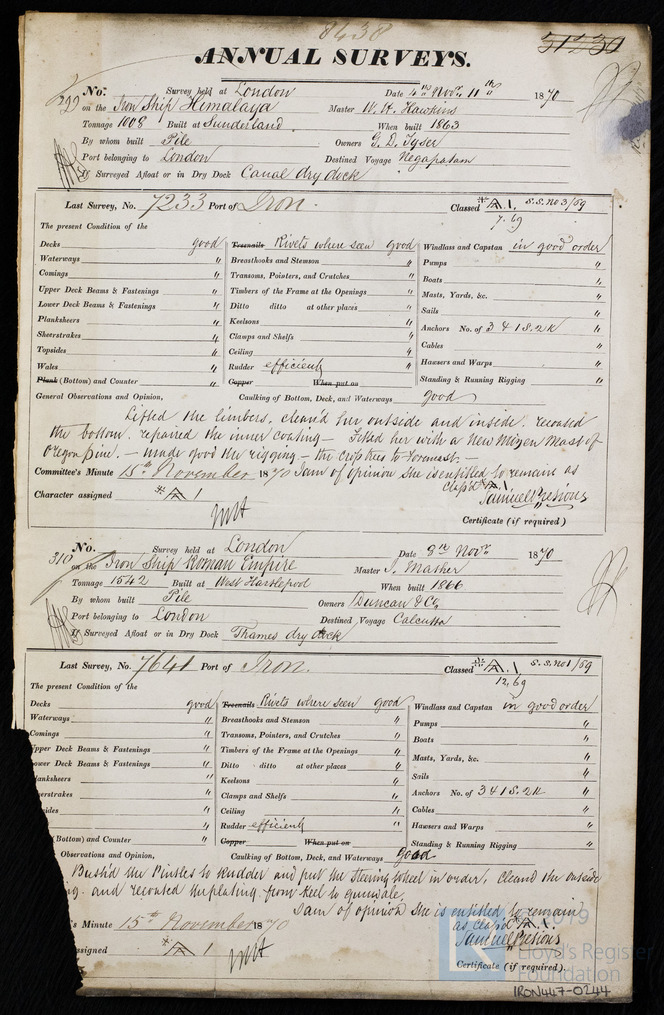 8438
51230
ANNUAL SURVEYS.
No. 299 Survey held at London Date 4th Novr 11th 1870
on the Iron Ship Himalaya Master W. H. Hawkins
Tonnage 1008 Built at Sunderland When built 1863
By whom built Pile Owners G. D. Tyser
Port belonging to London Destined Voyage Negapatam
If Surveyed Afloat or in Dry Dock Canal dry dock
Last Survey, No. 7233 Port of Iron. Classed *A.1, S.S. No 3/69
7.69
The present Condition of the
Decks good Treenails Rivets where seen good Windlass and Capstan in good order
Waterways " Breasthooks and Stemson " Pumps "
Comings " Transoms, Pointers, and Crutches " Boats "
Upper Deck Beams & Fastenings " Timbers of the Frame at the Openings " Masts, Yards, &c. "
Lower Deck Beams & Fastenings " Ditto ditto at other places " Sails "
Planksheers " Keelsons " Anchors No. of 3 4 1 S. 2 K "
Sheerstrakes " Clamps and Shelfs " Cables "
Topsides " Ceiling " Hawsers and Warps "
Wales " Rudder efficient Standing & Running Rigging "
Plank (Bottom) and Counter " Copper When put on
General Observations and Opinion, Caulking of Bottom, Deck, and Waterways good
Lifted the limbers, clean'd her outside and inside, recoated
the bottom, repaired the inner coating – Fitted her with a new Mizen Mast of
Oregon pine. – made good the rigging – the cross trees to Foremast. –
Committee's Minute 15th November 1870 I am of opinion she is entitled to remain as
class'd *A.1.
Character assigned *A 1 Samuel Pretious
Certificate (if required)
No. 310 Survey held at London Date 9th Novr 1870
on the Iron Ship Roman Empire Master J. Masher
Tonnage 1542 Built at West Hartlepool When built 1866
By whom built Pile Owners Duncan & Co
Port belonging to London Destined Voyage Calcutta
If Surveyed Afloat or in Dry Dock Thames dry dock
Last Survey, No. 7641 Port of Iron. Classed *A.1 S.S. No 1/69
12,69
The present Condition of the
Decks good Treenails Rivets where seen good Windlass and Capstan in good order
Waterways " Breasthooks and Stemson " Pumps "
Comings " Transoms, Pointers, and Crutches " Boats "
pper Deck Beams & Fastenings " Timbers of the Frame at the Openings " Masts, Yards, &c. "
ower Deck Beams & Fastenings " Ditto ditto at other places " Sails "
lanksheers " Keelsons " Anchors No. of 3 4 1 S. 2 K "
erstrakes " Clamps and Shelfs " Cables "
sides " Ceiling " Hawsers and Warps "
" Rudder efficient " Standing & Running Rigging "
(Bottom) and Counter " Copper When put on
Observations and Opinion, Caulking of Bottom, Deck, and Waterways good
Bush'd the Pintles to Rudder and put the steering wheel in order, Cleand the outside
g. and recoated the plating from keel to gunwale.
I am of opinion she is entitled to remain
's Minute 15th November 1870 as class'd *A.1.
ssigned *A 1 Samuel Pretious
Certificate (if required).
2019
Lloyd's Register
Foundation
IRON447-0244